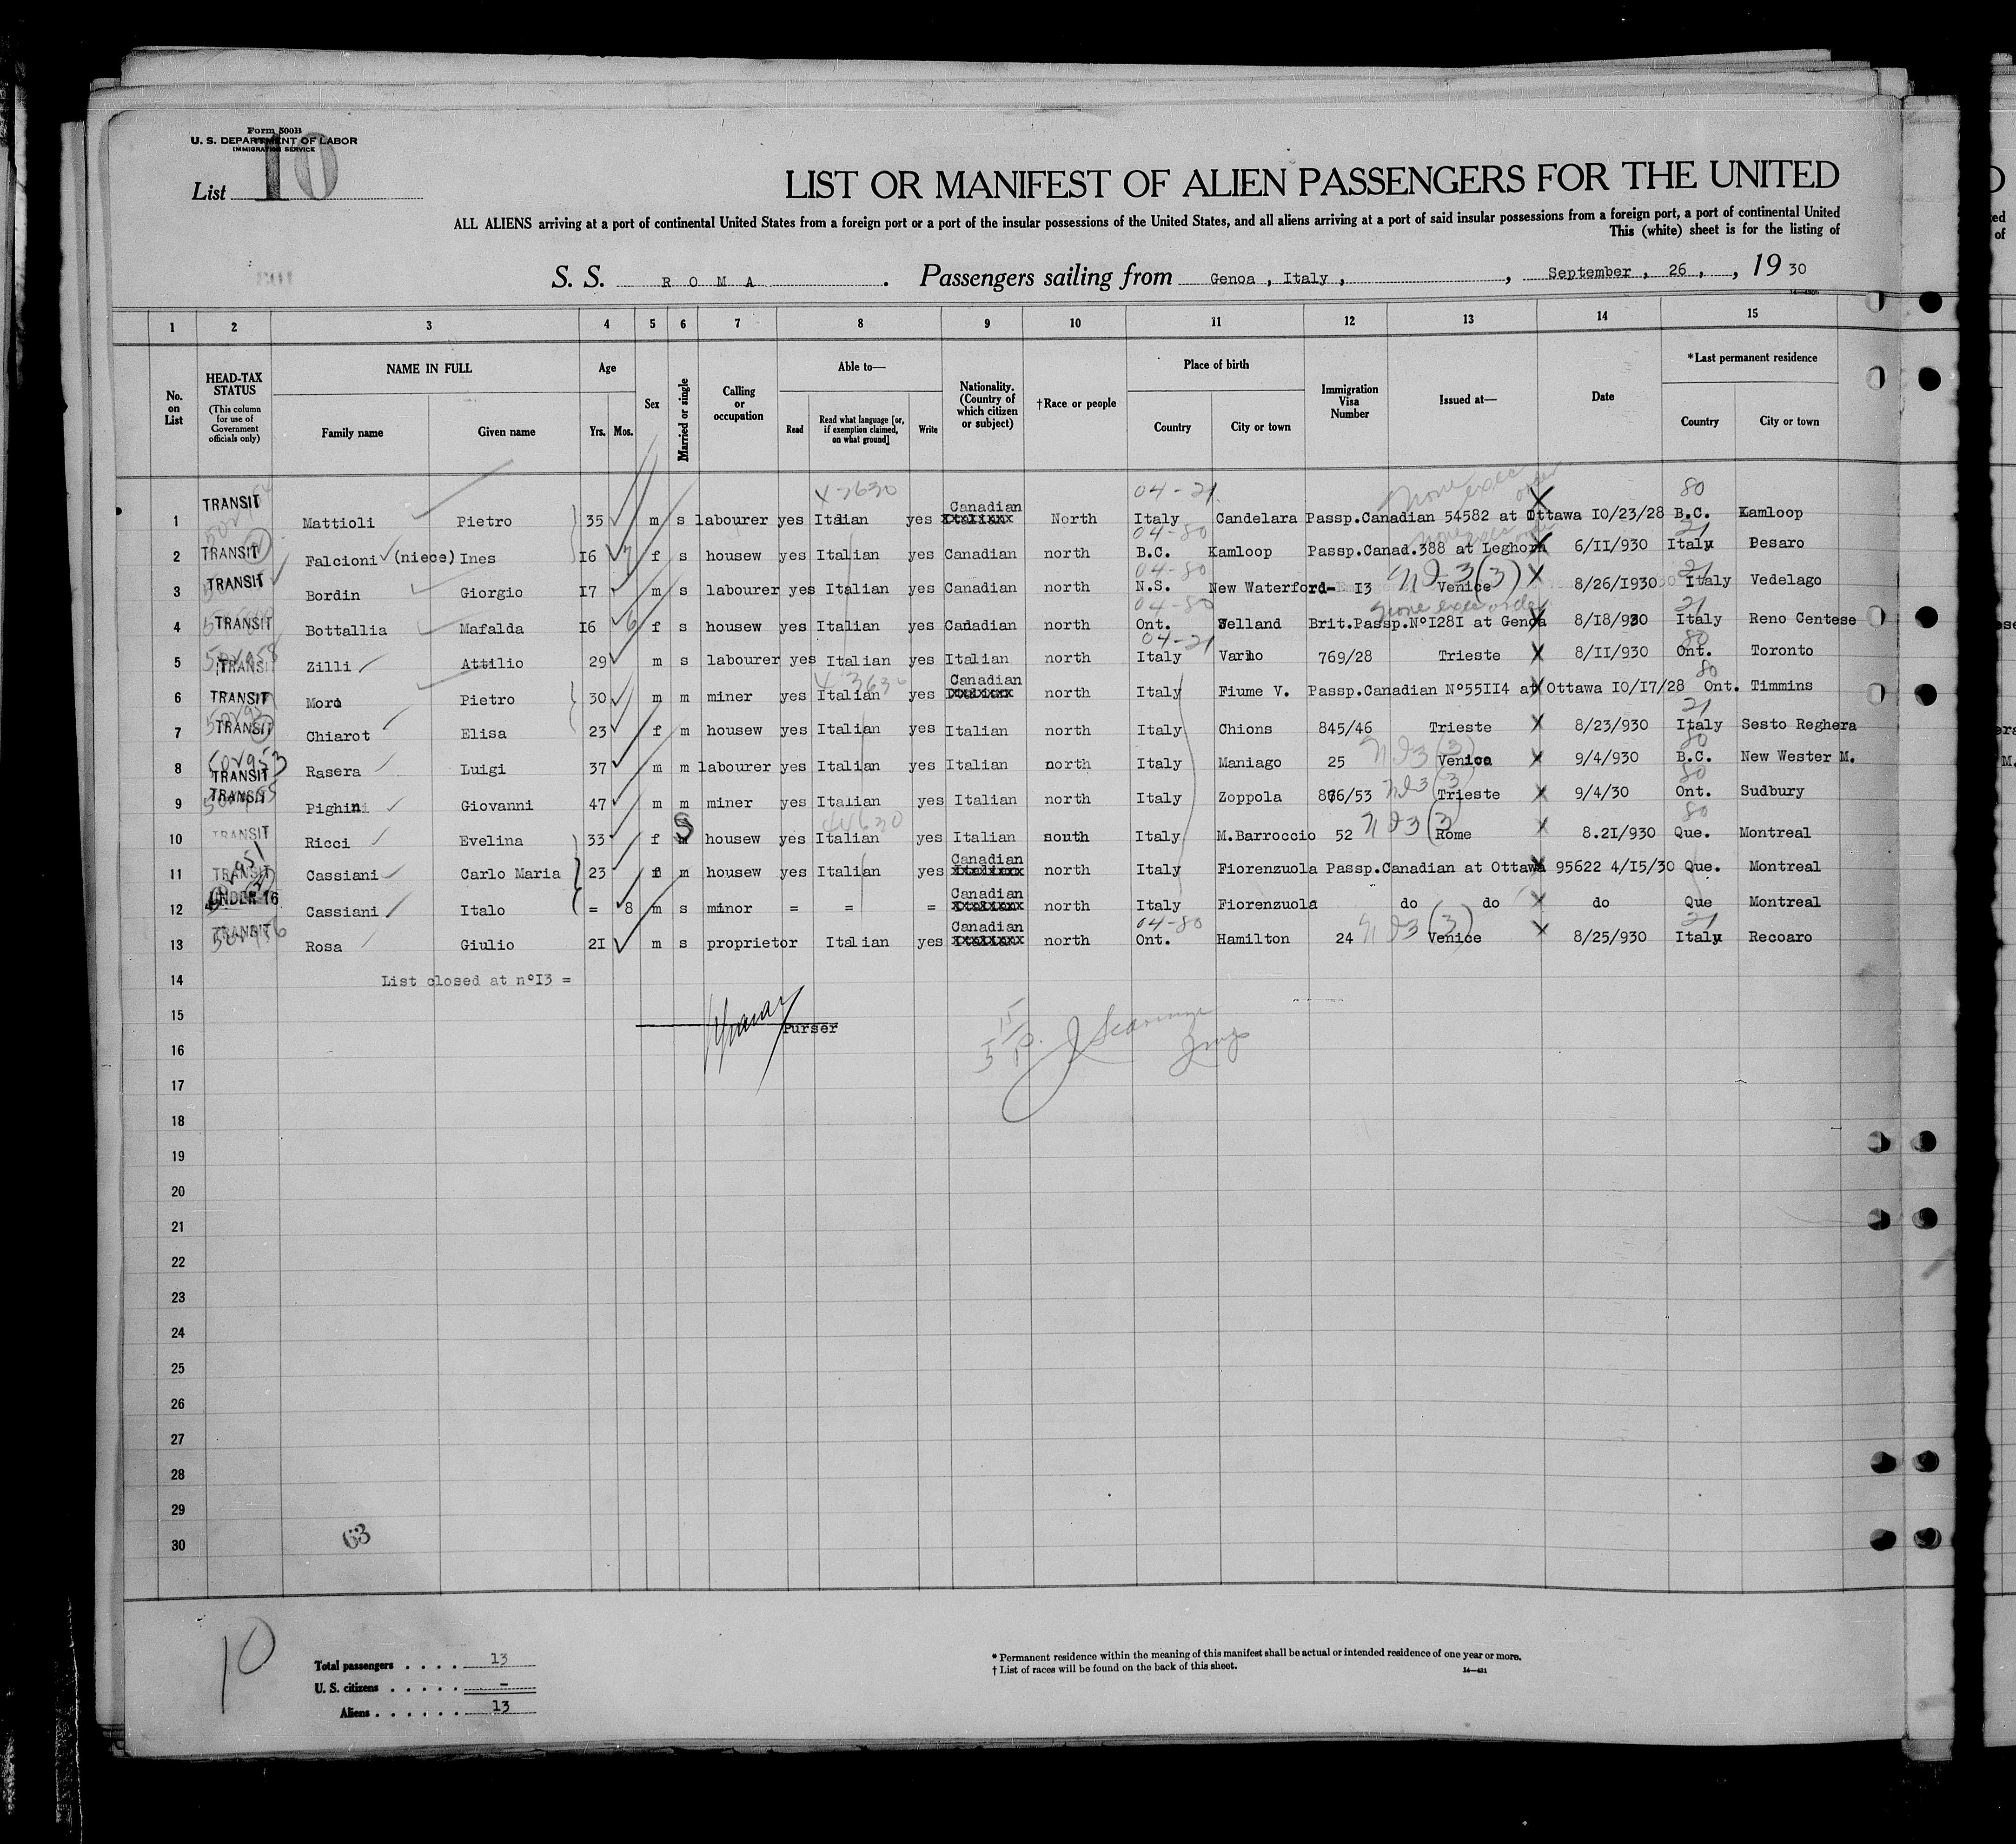 Form 500B
U. S. DEPARTMENT OF LABOR
IMMIGRATION SERVICE
List 10
LIST OR MANIFEST OF ALIEN PASSENGERS FOR THE UNITED
ALL ALIENS arriving at a port of continental United States from a foreign port or a port of the insular possessions of the United States, and all aliens arriving at a port of said insular possessions from a foreign port, a port of continental United
This (white) sheet is for the listing of
S. S. R O M A . Passengers sailing from Genoa , Italy , , September , 26 , , 19 30
1 2 3 4 5 6 7 8 9 10 11 12 13 14 15
No. on List
HEAD-TAX STATUS (This column for use of Government officials only)
NAME IN FULL Family name Given name
Age Yrs. Mos.
Sex
Married or single
Calling or occupation
Able to— Read Read what language [or, if exemption claimed, on what ground] Write
Nationality. (Country of which citizen or subject)
†Race or people
Place of birth Country City or town
Immigration Visa Number
Issued at—
Date
*Last permanent residence Country City or town
04-21 80
1 TRANSIT Mattioli Pietro 35 m s labourer yes Italian yes Canadian North Italy Candelara Passp.Canadian 54582 at Ottawa 10/23/28 B.C. Kamloop
04-80 21
2 TRANSIT Falcioni (niece) Ines 16 7 f s housew yes Italian yes Canadian north B.C. Kamloop Passp.Canad.388 at Leghorn 6/11/930 Italy Pesaro
04-80 21
3 TRANSIT Bordin Giorgio 17 m s labourer yes Italian yes Canadian north N.S. New Waterford- 13 Venice 8/26/1930 Italy Vedelago
04-80 none exec order 21
4 TRANSIT Bottallia Mafalda 16 6 f s housew yes Italian yes Canadian north Ont. Welland Brit.Passp.N°1281 at Genoa 8/18/930 Italy Reno Centese
04-21 80
5 TRANSI Zilli Attilio 29 m s labourer yes Italian yes Italian north Italy Varmo 769/28 Trieste 8/11/930 Ont. Toronto
80
6 TRANSIT Moro Pietro 30 m m miner yes Italian yes Canadian north Italy Fiume V. Passp.Canadian N°55114 at Ottawa 10/17/28 Ont. Timmins
21
7 TRANSIT Chiarot Elisa 23 f m housew yes Italian yes Italian north Italy Chions 845/46 Trieste 8/23/930 Italy Sesto Reghera
80
8 TRANSIT Rasera Luigi 37 m m labourer yes Italian yes Italian north Italy Maniago 25 Venice 9/4/930 B.C. New Wester M.
80
9 TRANSIT Pighini Giovanni 47 m m miner yes Italian yes Italian north Italy Zoppola 876/53 Trieste 9/4/30 Ont. Sudbury
80
10 TRANSIT Ricci Evelina 33 f S housew yes Italian yes Italian south Italy M.Barroccio 52 Rome 8.21/930 Que. Montreal
11 TRANSIT Cassiani Carlo Maria 23 f m housew yes Italian yes Canadian north Italy Fiorenzuola Passp.Canadian at Ottawa 95622 4/15/30 Que. Montreal
12 UNDER 16 Cassiani Italo = 8 m s minor = = = Canadian north Italy Fiorenzuola do do do Que Montreal
04-80 21
13 TRANSIT Rosa Giulio 21 m s proprietor Italian yes Canadian north Ont. Hamilton 24 Venice 8/25/930 Italy Recoaro
14 List closed at n°13 =
15 Purser
16
17
18
19
20
21
22
23
24
25
26
27
28
29
30
63
10
Total passengers . . . . 13
U. S. citizens . . . . . –
Aliens . . . . . . 13
* Permanent residence within the meaning of this manifest shall be actual or intended residence of one year or more.
† List of races will be found on the back of this sheet.
14—431